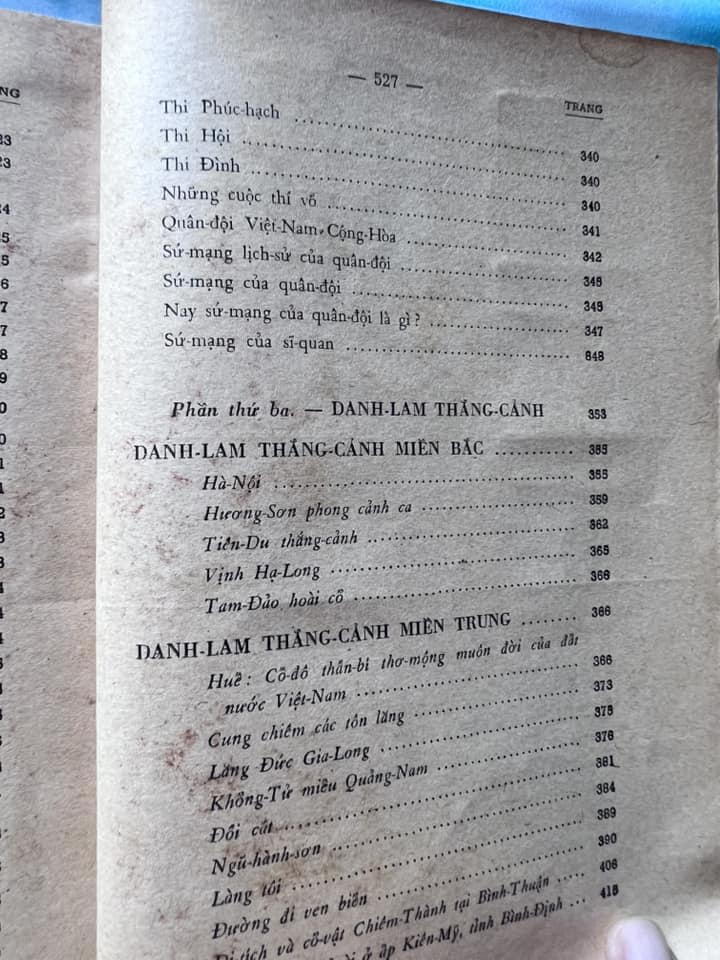 — 527 —
TRANG
Thi Phúc-hạch ........ 340
Thi Hội ........ 340
Thi Đình ........ 340
Những cuộc thí võ ........ 341
Quân-đội Việt-Nam Cộng-Hòa ........ 342
Sứ-mạng lịch-sử của quân-đội ........ 345
Sứ-mạng của quân-đội ........ 345
Nay sứ-mạng của quân-đội là gì ? ........ 347
Sứ-mạng của sĩ-quan ........ 348
Phần thứ ba. — DANH-LAM THẮNG-CẢNH 353
DANH-LAM THẮNG-CẢNH MIỀN BẮC ........ 355
Hà-Nội ........ 355
Hương-Sơn phong cảnh ca ........ 359
Tiên-Du thắng-cảnh ........ 362
Vịnh Hạ-Long ........ 365
Tam-Đảo hoài cổ ........ 366
DANH-LAM THẮNG-CẢNH MIỀN TRUNG ........ 366
Huế : Cố-đô thần-bí thơ-mộng muôn đời của đất
nước Việt-Nam ........ 366
Cung chiêm các tôn lăng ........ 373
Lăng Đức Gia-Long ........ 375
Khổng-Tử miếu Quảng-Nam ........ 376
Đồi cát ........ 381
Ngũ-hành-sơn ........ 384
Làng tôi ........ 389
Đường đi ven biển ........ 390
Di-tích và cổ-vật Chiêm-Thành tại Bình-Thuận ..... 406
ở ấp Kiên-Mỹ, tỉnh Bình-Định ... 415